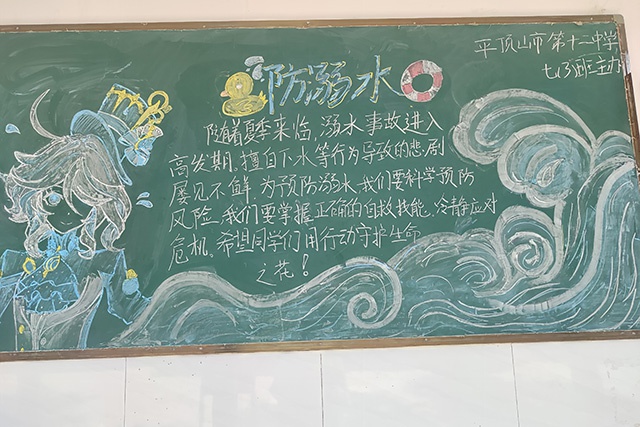 防溺水
平顶山市第十二中学
七(3)班主办
随着夏季来临,溺水事故进入
高发期。擅自下水等行为导致的悲剧
屡见不鲜,为预防溺水,我们要科学预防
风险,我们要掌握正确的自救技能。冷静应对
危机。希望同学们用行动守护生命
之花!